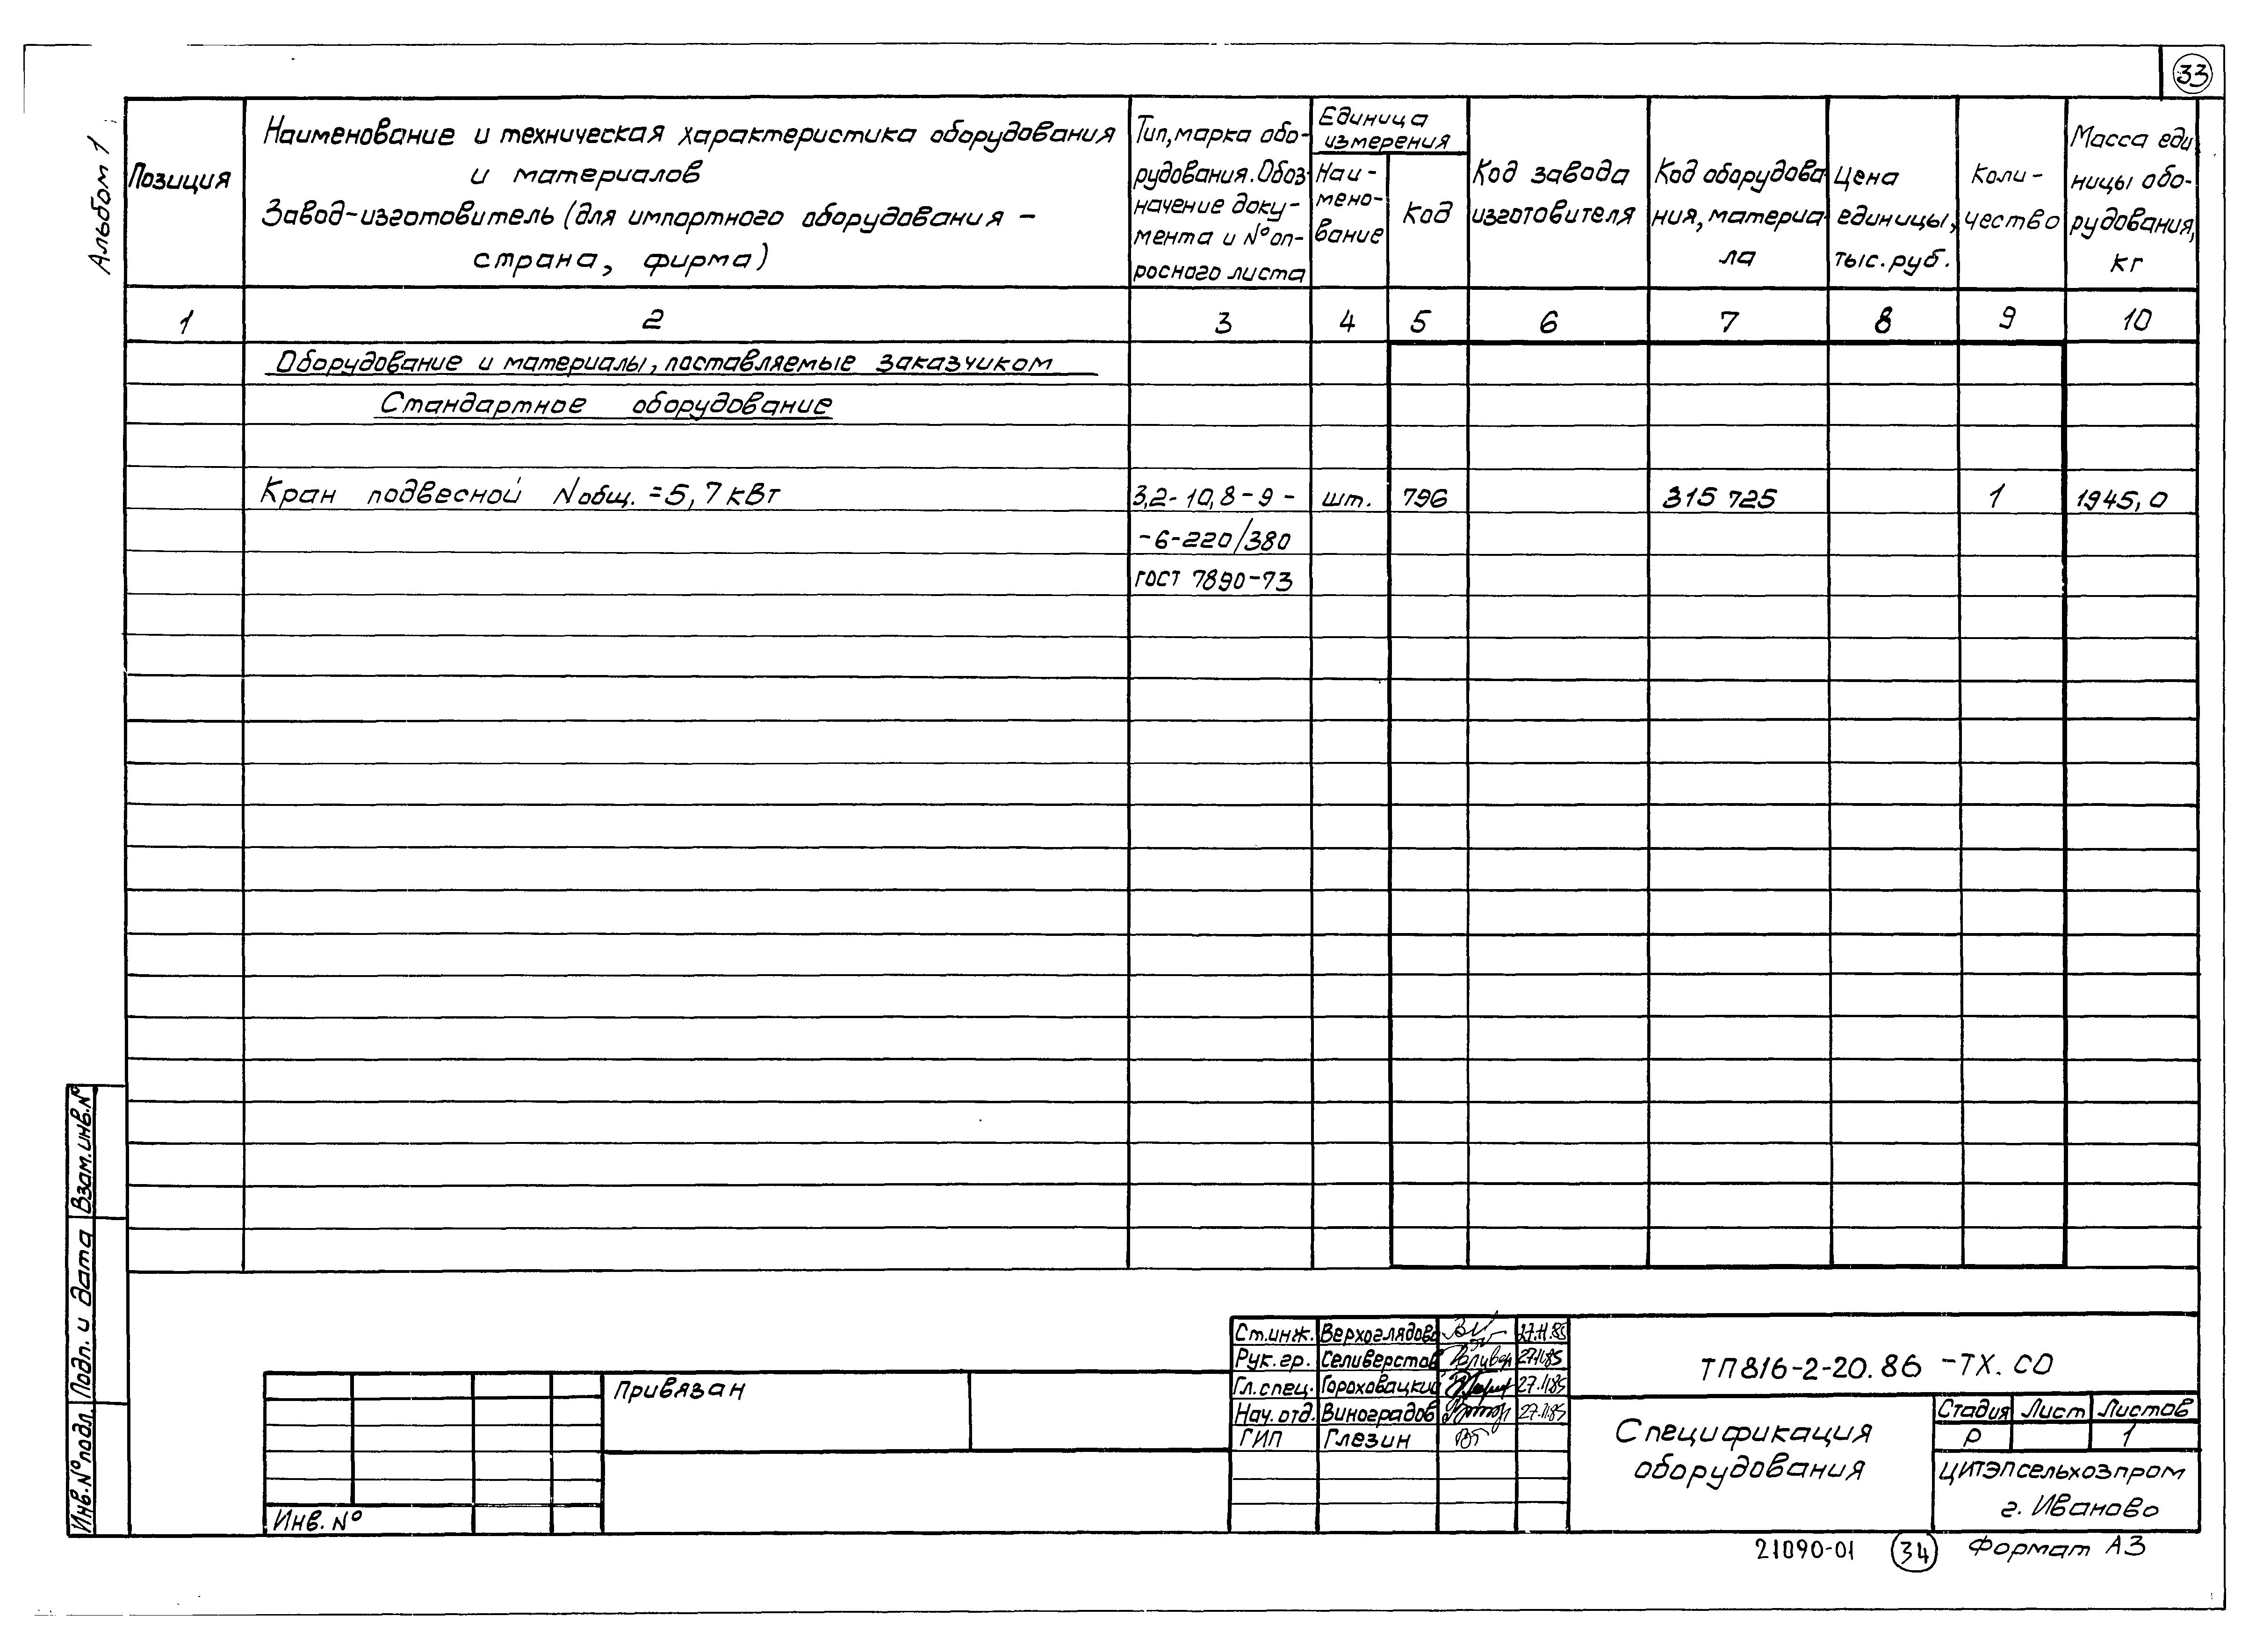 33
Альбом 1
Позиция
Наименование и техническая характеристика оборудования
и материалов
Завод-изготовитель (для импортного оборудования –
страна, фирма)
Тип, марка обо-
рудования. Обоз-
начение доку-
мента и № оп-
росного листа
Единица
измерения
Наи-
мено-
вание
Код
Код завода
изготовителя
Код оборудова
ния, материа-
ла
Цена
единицы,
тыс. руб.
Коли-
чество
Масса еди
ницы обо-
рудования,
кг
1 2 3 4 5 6 7 8 9 10
Оборудование и материалы, поставляемые заказчиком
Стандартное оборудование
Кран подвесной Nобщ. = 5,7 кВт 3,2-10,8-9- шт. 796 315 725 1 1945,0
-6-220/380
ГОСТ 7890-73
Взам. инв. №
Подп. и дата
Инв. № подл.
Привязан
Инв. №
Ст. инж. Верхоглядова 27.11.85
Рук. гр. Селиверстов 27.11.85
Гл. спец. Гороховацкий 27.11.85
Нач. отд. Виноградов 27.11.85
ГИП Глезин
ТП 816-2-20.86 -ТХ. СО
Спецификация
оборудования
Стадия Лист Листов
Р 1
ЦИТЭПсельхозпром
г. Иваново
21090-01 34 Формат А3